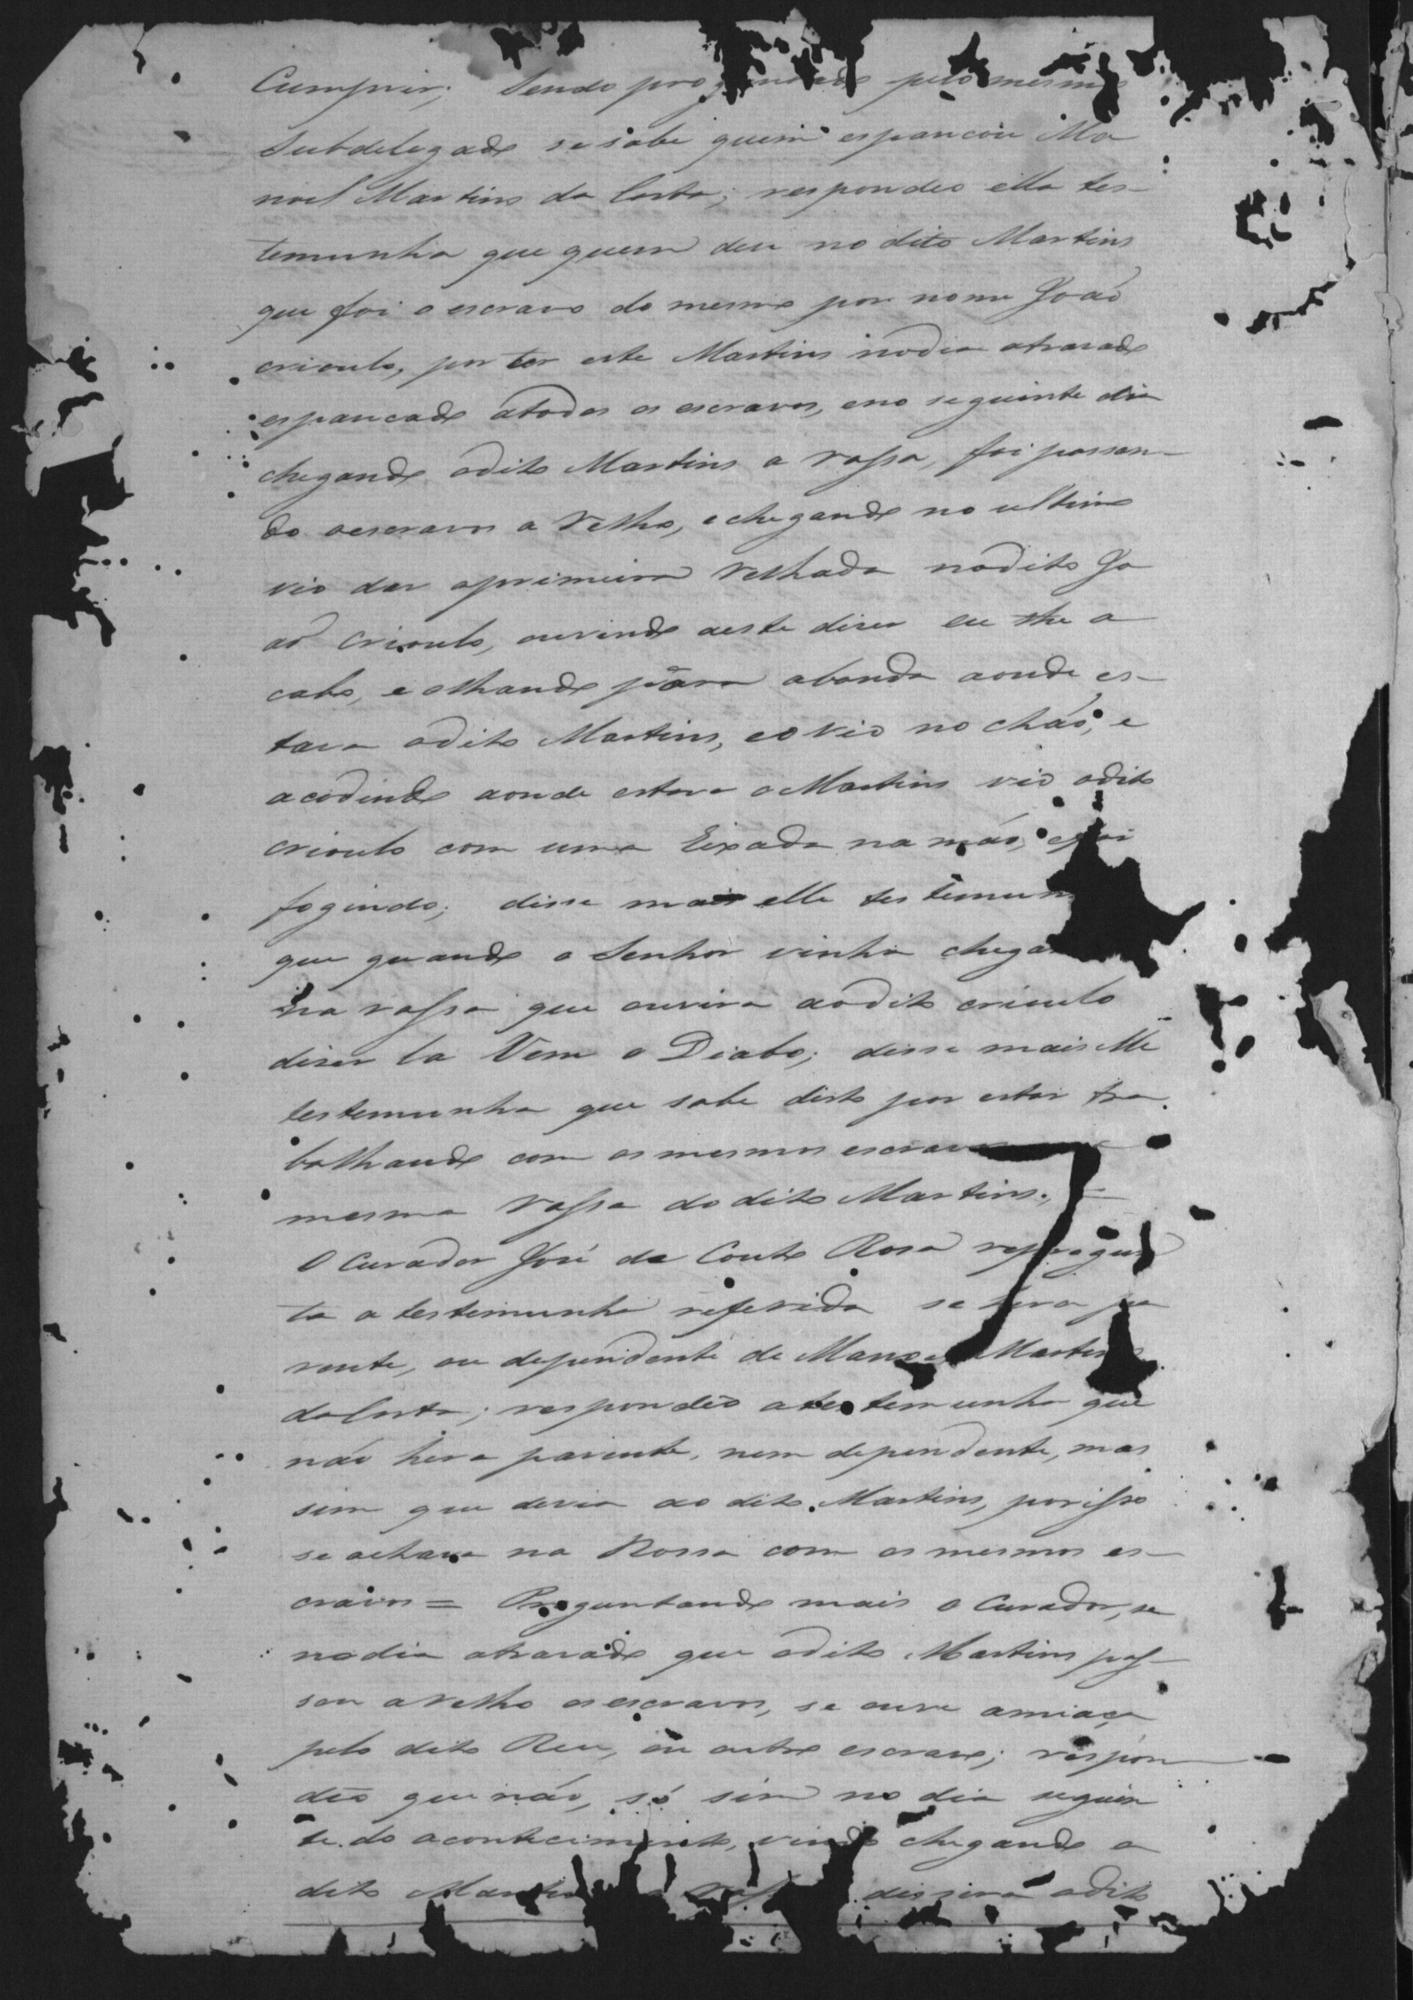 Cumprir; Sendo pelo mesmo
Subdelegado se sabe quem espancou Ma
noel Martins da Costa; respondeo ella tes-
temunha que quem deu no dito Martins
que foi o escravo do mesmo por nome João
crioulo, por ter este Martins nodia atrazado
espancado atodos os escravos, eno seguinte dia
chegando odito Martins a rossa, foi passan-
do aescravos a relho, echegando no ultimo
vio dar aprimeira relhada nodito Jo
ão crioulo, ouvindo aeste dizer eu the a
cabo, e olhando para abanda aonde es-
tava odito Martins, eo vio no chão, e
acodindo aonde estava o Martins vio odito
crioulo com uma Eixada na mão, efoi
fogindo; disse mais elle testemun
que quando o Senhor vinha chega
na rossa que ouvira aodito crioulo
dizer la Vem o Diabo; disse mais elle
testemunha que sabe disto por estar tra
balhando com os mesmos escrav
mesma rossa do dito Martins. =
O Curador José do Couto Rosa repregun
ta a testimunha referida se hera pa
rente, ou dependente de Manoel Martins
da Costa; respondeo atestemunha que
não hera parente, nem dependente, mas
sim que devia ao dito Martins, porisso
se achava na Rossa com os mesmos es-
cravos = Preguntando mais o Curador, se
nodia atrazado que odito Martins pas-
sou arelho os escravos, se ouve amiaça
pelo dito Reu, ou outro escravo; respon
deo que não, só sim no dia seguin
te do acontecimento, vindo chegando o
dito Martins dissera odito